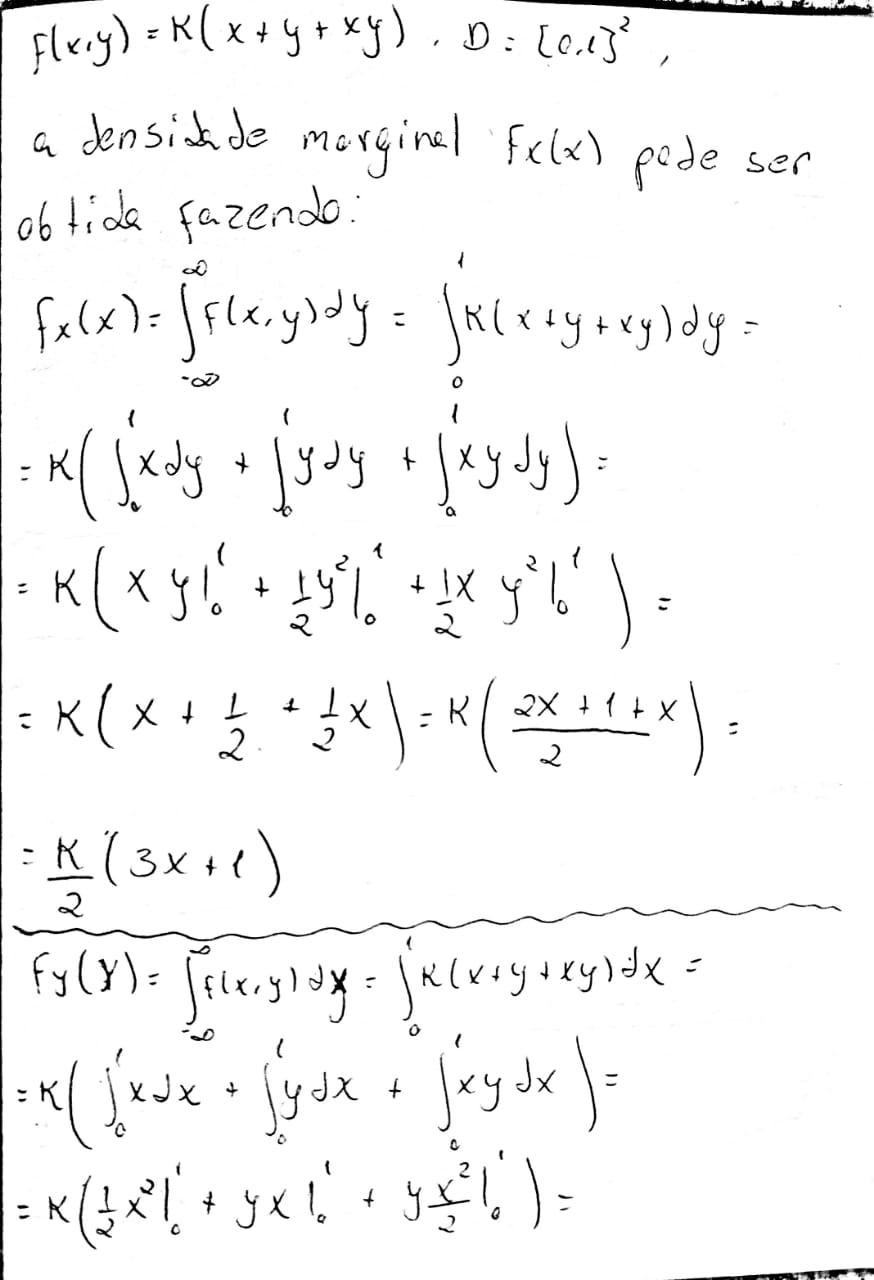 f(x,y) = K(x + y + xy), D = [0,1]²,
a densidade marginal Fx(x) pode ser
obtida fazendo:
fx(x) = ∫_{-∞}^{∞} f(x,y)dy = ∫_0^1 K(x+y+xy)dy =
= K(∫_0^1 x dy + ∫_0^1 y dy + ∫_0^1 xy dy) =
= K(x y|_0^1 + 1/2 y²|_0^1 + 1/2 x y²|_0^1) =
= K(x + 1/2 + 1/2 x) = K((2x + 1 + x)/2) =
= K/2 (3x + 1)
Fy(y) = ∫_{-∞}^{∞} f(x,y)dx = ∫_0^1 K(x+y+xy)dx =
= K(∫_0^1 x dx + ∫_0^1 y dx + ∫_0^1 xy dx) =
= K(1/2 x²|_0^1 + yx|_0^1 + y x²/2|_0^1) =